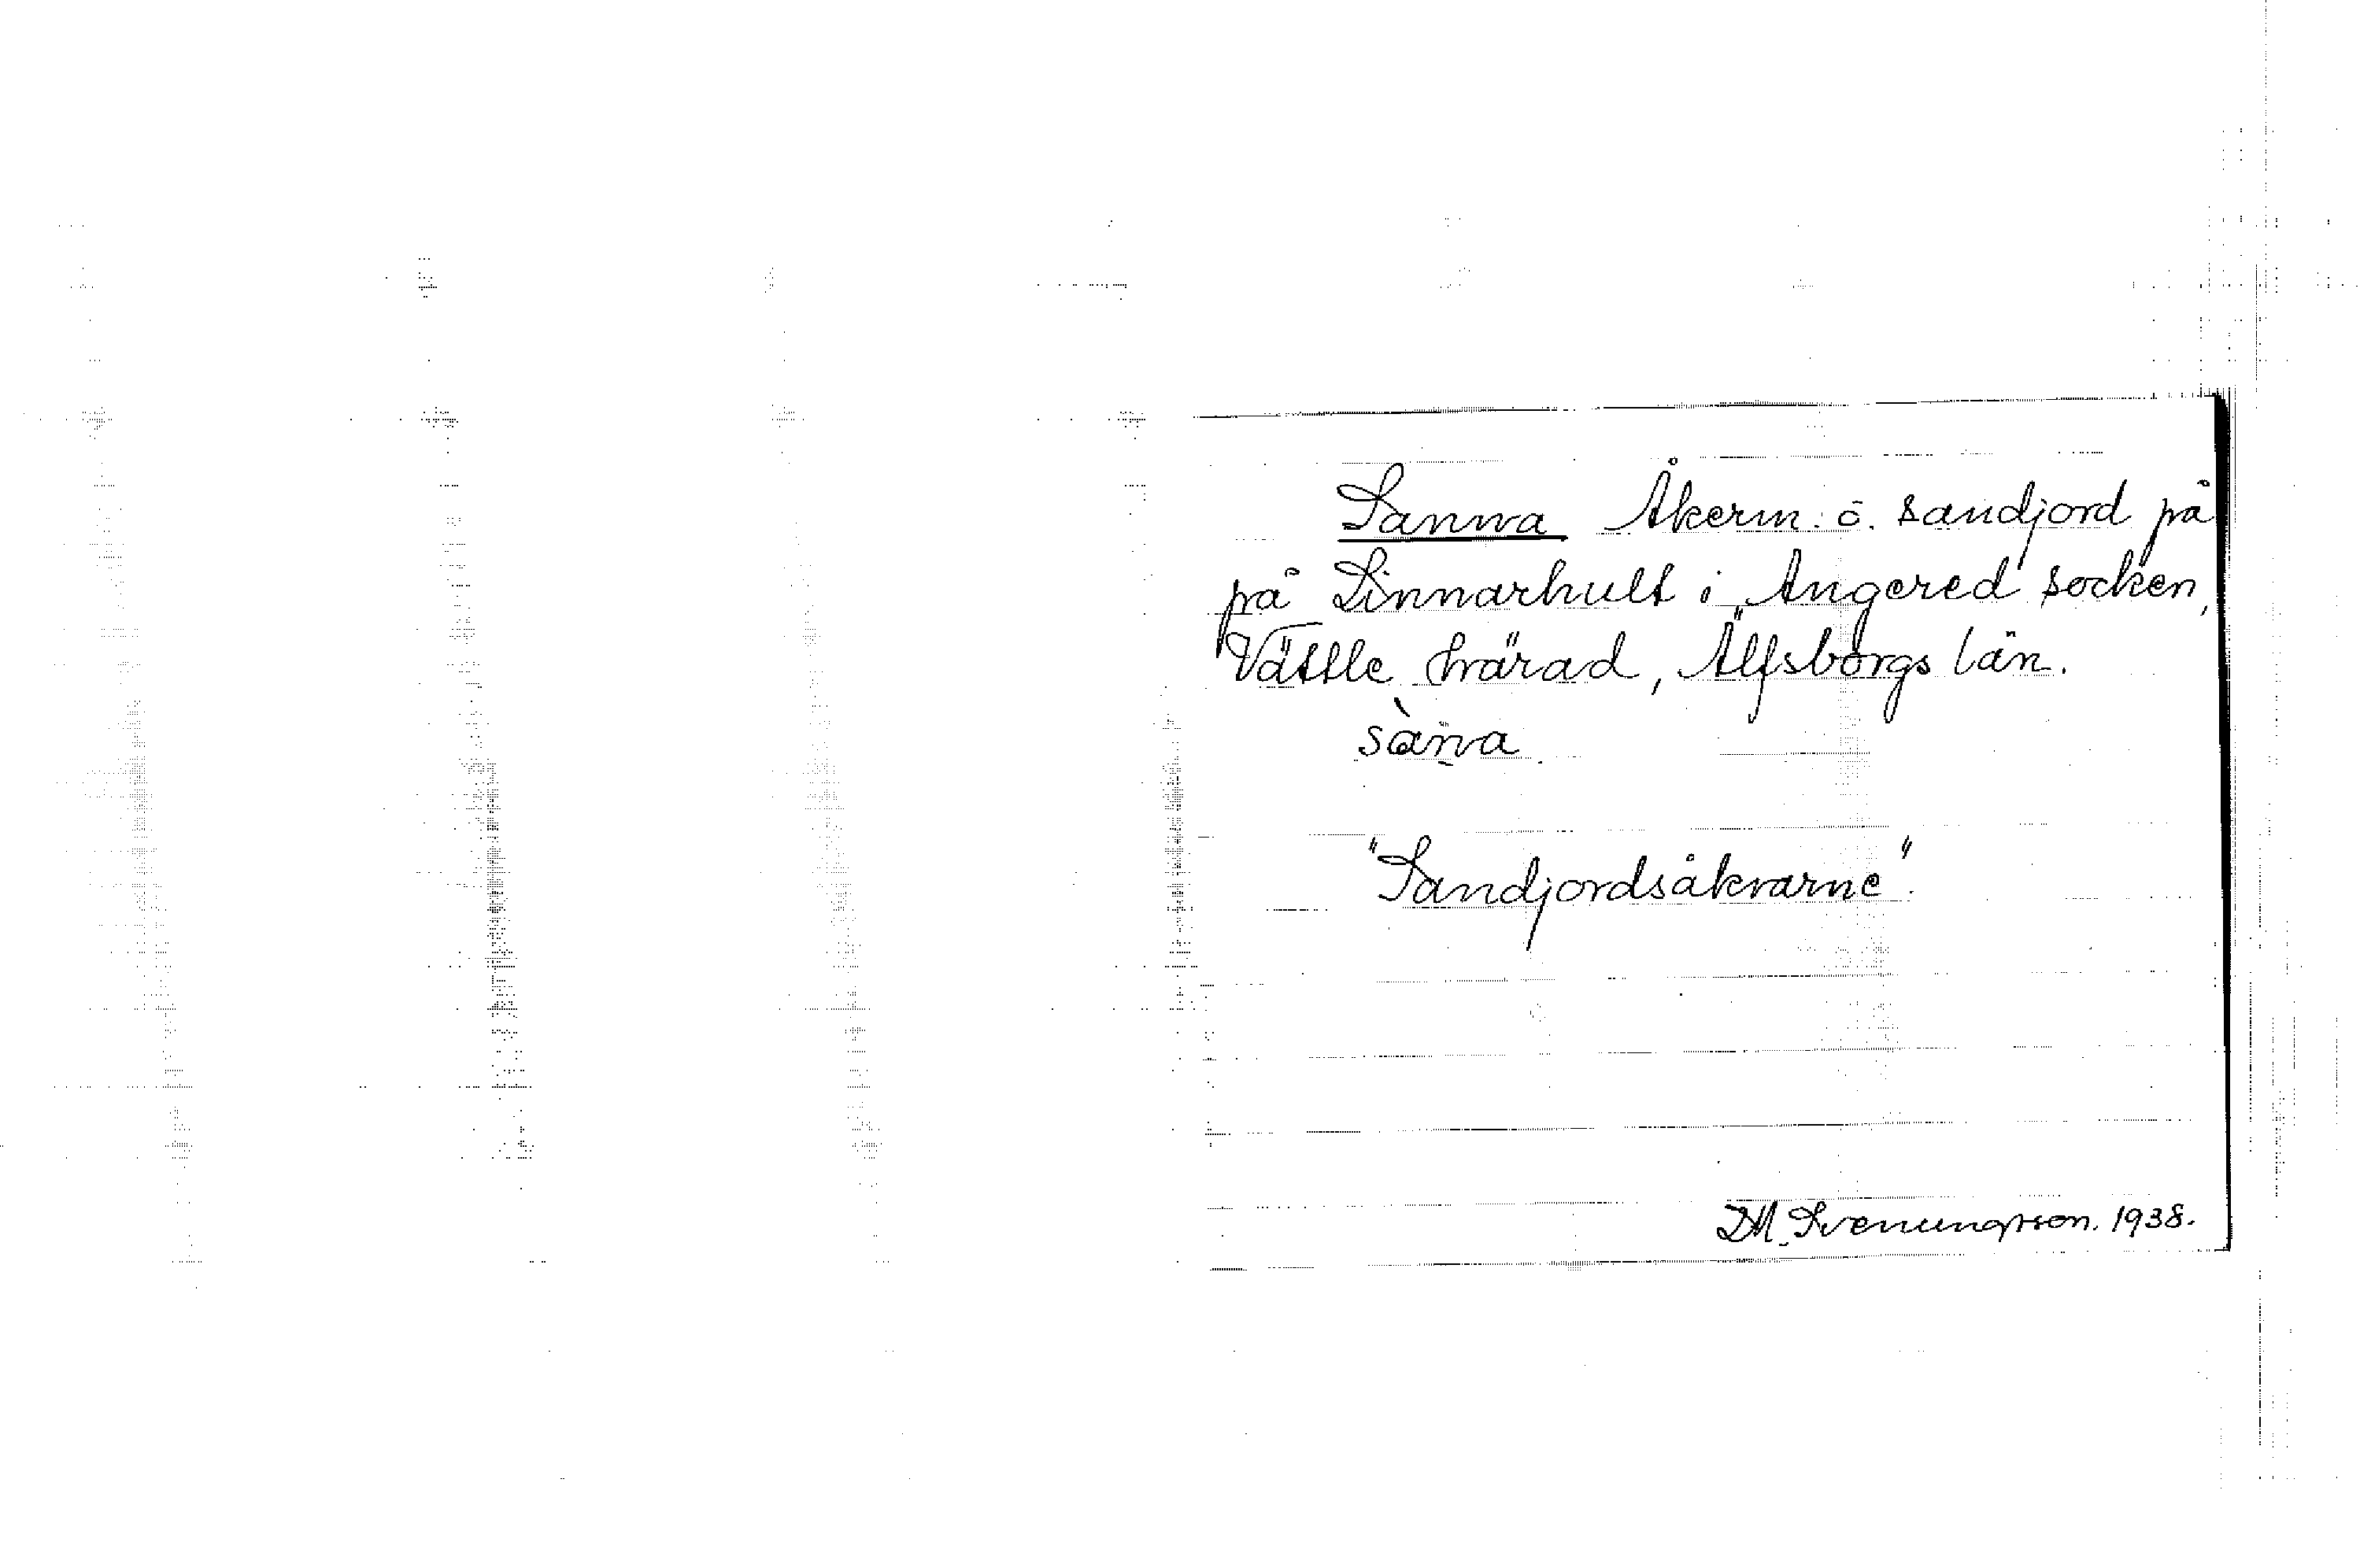 Sanna Åkerm. ö. sandjord på
på Linnarhult i Angered socken,
Vättle härad, Älfsborgs län.
sàna
"Sandjordsåkrarne".
DM. Svenungsson. 1938.